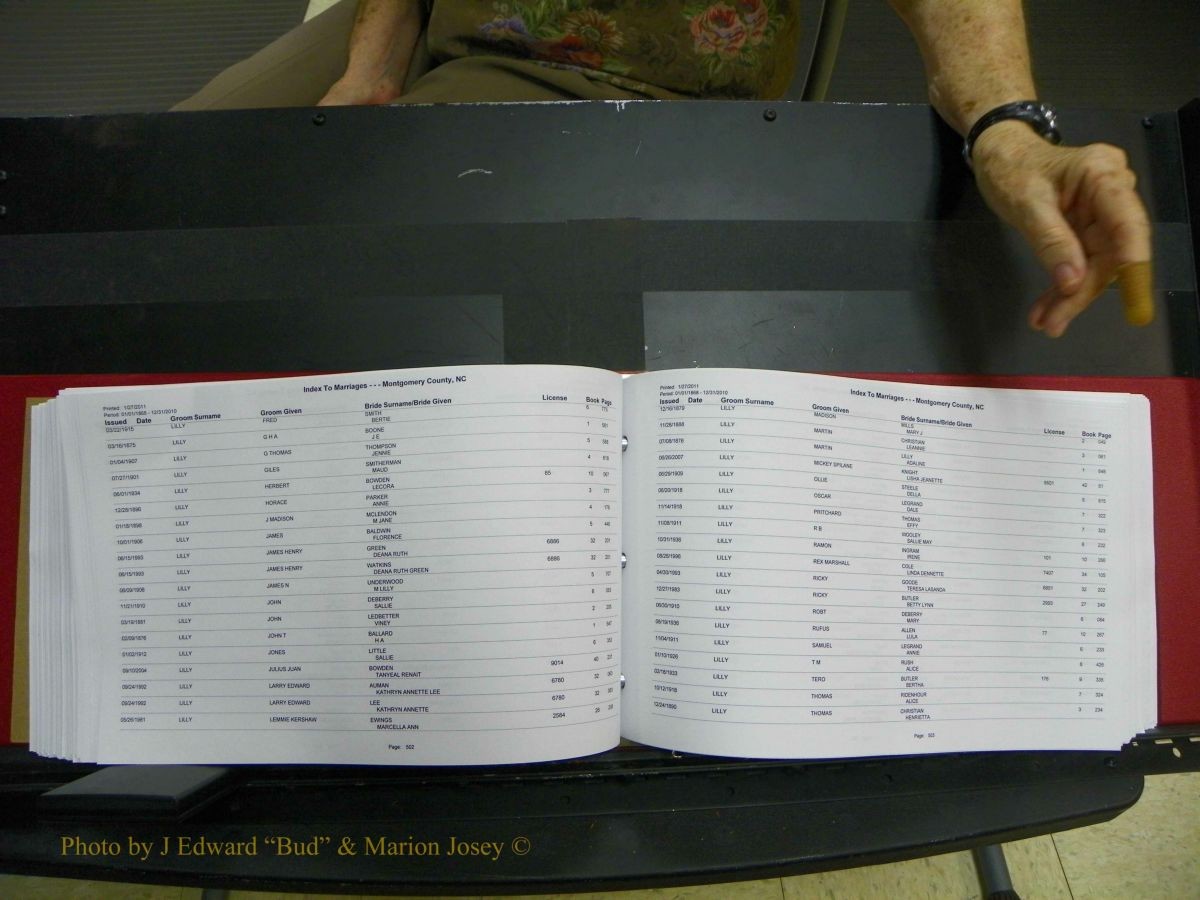 Index To Marriages - - - Montgomery County, NC
Printed: 1/27/2011
Period: 01/01/1868 - 12/31/2010
Issued Date Groom Surname Groom Given Bride Surname/Bride Given License Book Page
03/22/1915 LILLY FRED SMITH 6 775
BERTIE
03/16/1875 LILLY G H A BOONE 1
J E
01/04/1907 LILLY G THOMAS THOMPSON 5
JENNIE
07/27/1901 LILLY GILES SMITHERMAN 4
MAUD
06/01/1934 LILLY HERBERT BOWDEN 65 10
LECORA
12/28/1896 LILLY HORACE PARKER 3 777
ANNIE
01/18/1898 LILLY J MADISON MCLENDON 4
M JANE
10/01/1906 LILLY JAMES BALDWIN 5
FLORENCE
06/15/1993 LILLY JAMES HENRY GREEN 6886 32 201
DEANA RUTH
06/15/1993 LILLY JAMES HENRY WATKINS 6886 32 201
DEANA RUTH GREEN
LILLY JAMES N UNDERWOOD 5
M LILLY
11/21/1910 LILLY JOHN DEBERRY 6
SALLIE
03/19/1881 LILLY JOHN LEDBETTER 2
VINEY
02/09/1876 LILLY JOHN T BALLARD 1
H A
01/02/1912 LILLY JONES LITTLE 6
SALLIE
09/10/2004 LILLY JULIUS JUAN BOWDEN 9014 40
TANYEAL RENAIT
09/24/1992 LILLY LARRY EDWARD AUMAN 6780 32
KATHRYN ANNETTE LEE
09/24/1992 LILLY LARRY EDWARD LEE 6780 32
KATHRYN ANNETTE
05/26/1981 LILLY LEMMIE KERSHAW EWINGS 2584
MARCELLA ANN
Page: 502
Index To Marriages - - - Montgomery County, NC
Printed: 1/27/2011
Period: 01/01/1868 - 12/31/2010
Issued Date Groom Surname Groom Given Bride Surname/Bride Given License Book Page
12/16/1879 LILLY MADISON MILLS 2
MARY J
11/26/1888 LILLY MARTIN CHRISTIAN 3
LEANNIE
07/08/1876 LILLY MARTIN LILLY 1
ADALINE
06/26/2007 LILLY MICKEY SPILANE KNIGHT 42
LISHA JEANETTE
LILLY OLLIE STEELE 5
DELLA
LILLY OSCAR LEGRAND 7 322
DALE
11/14/1918 LILLY PRITCHARD THOMAS 7
EFFY
11/08/1911 LILLY R B WOOLEY 6 232
SALLIE MAY
10/31/1936 LILLY RAMON INGRAM 101 10
IRENE
LILLY REX MARSHALL COLE 7407 34 105
LINDA DENNETTE
04/30/1993 LILLY RICKY GOODE 32 202
TERESA LASANDA
12/27/1983 LILLY RICKY BUTLER 27
BETTY LYNN
LILLY ROBT DEBERRY 6
MARY
LILLY RUFUS ALLEN 77 10 267
LULA
11/04/1911 LILLY SAMUEL LEGRAND 6
ANNIE
01/10/1926 LILLY T M RUSH 8 426
ALICE
02/18/1933 LILLY TERO BUTLER 176 9
BERTHA
10/12/1918 LILLY THOMAS RIDENHOUR 7 324
ALICE
12/24/1890 LILLY THOMAS CHRISTIAN 3 234
HENRIETTA
Page: 503
Photo by J Edward “Bud” & Marion Josey ©